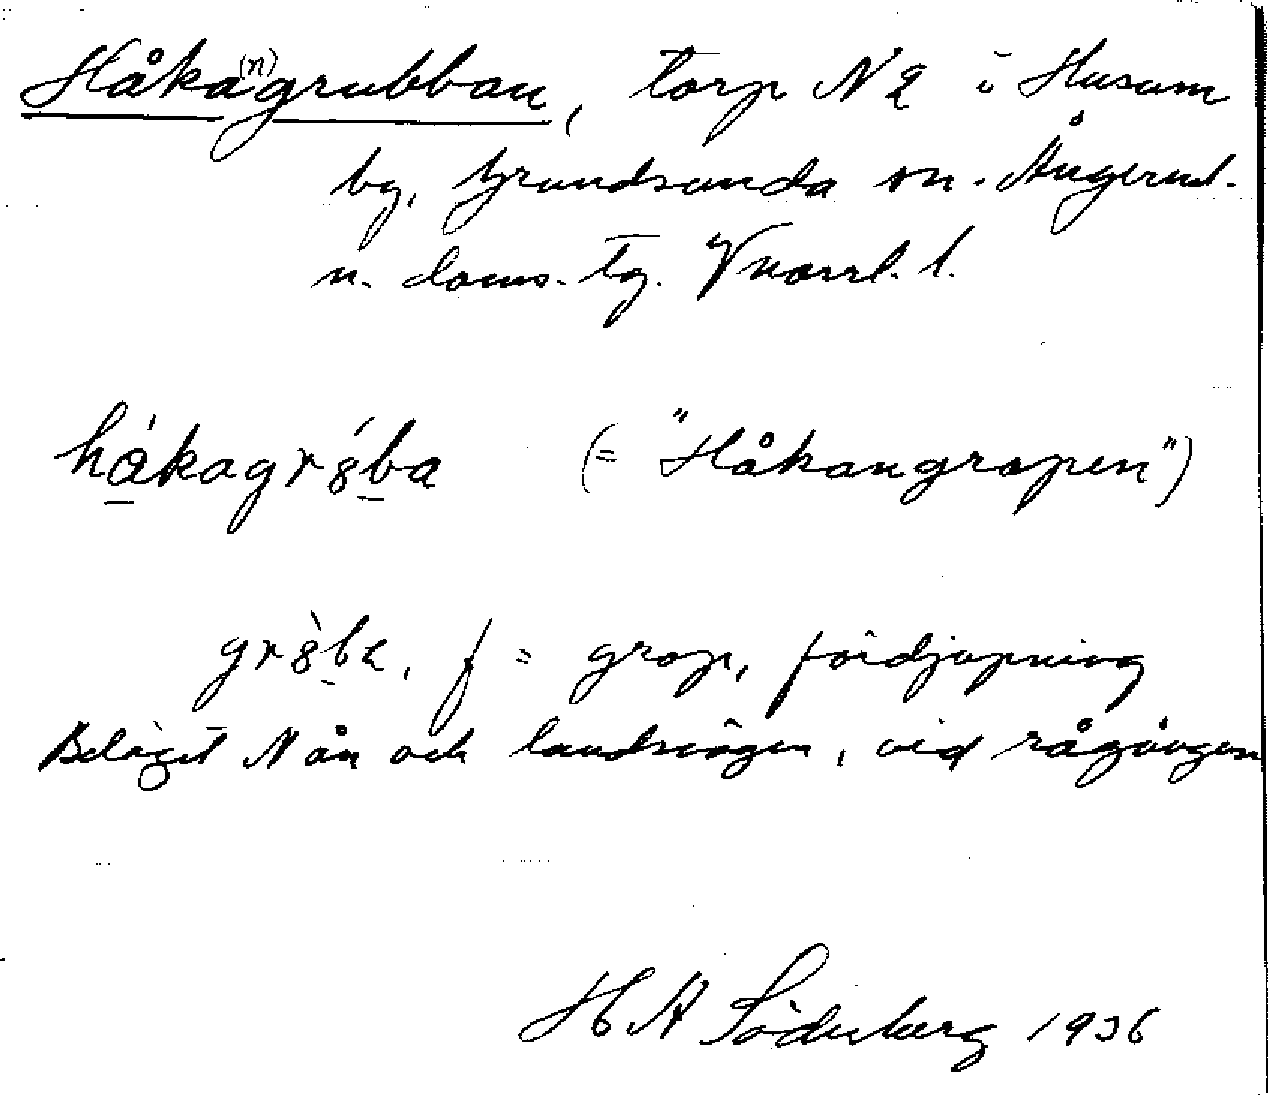 Håka(n)grubban, torp N 2 i Husum
by, Grundsunda sn. Ångerml.
n. doms. tg. Vnorrl. l.
håkagr8ba (= "Håkangropen")
gr8ba, f = grop, fördjupning
Beläget N ån och landsvägen, vid rågången
H A Söderberg 1936